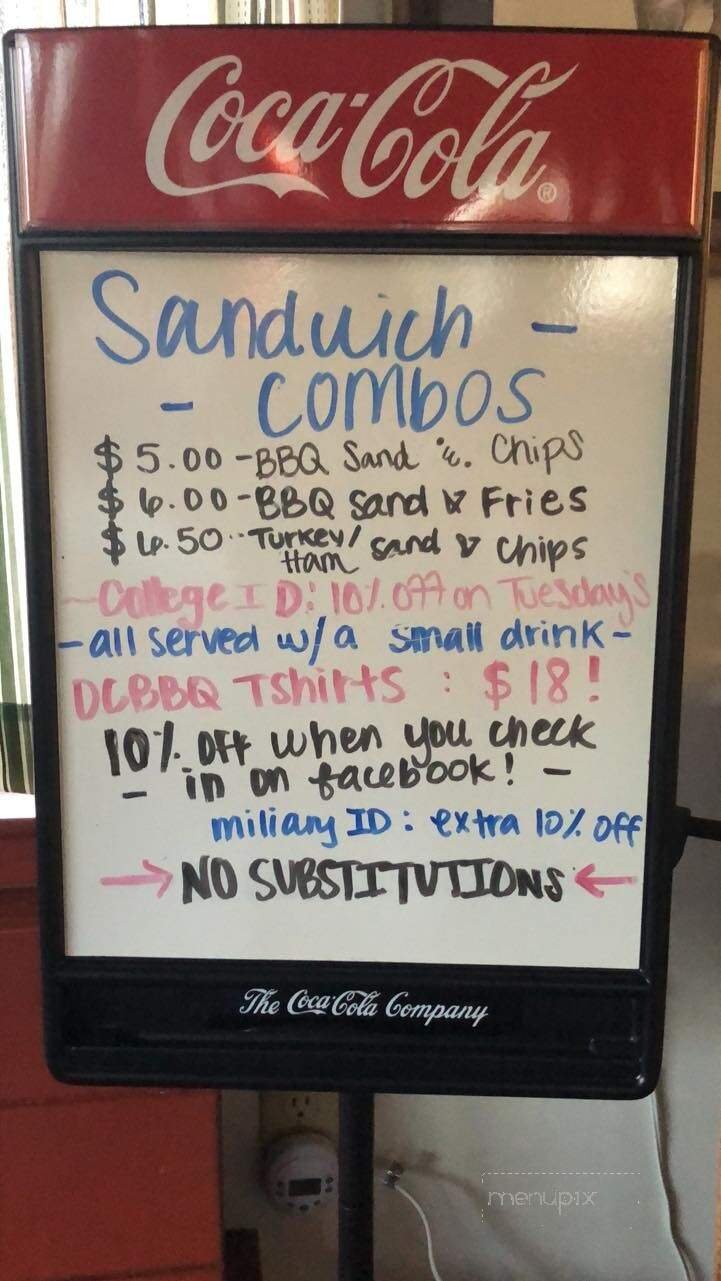 Coca-Cola®
Sandwich -
- combos
$5.00 - BBQ Sand &. Chips
$6.00 - BBQ Sand & Fries
$6.50 - Turkey/Ham sand & Chips
- College ID: 10% off on Tuesday's
- all served w/a small drink -
DCBBQ Tshirts : $18!
10% Off when you check
- in on facebook! -
miliany ID: extra 10% off
→ NO SUBSTITUTIONS ←
The Coca-Cola Company
menupix